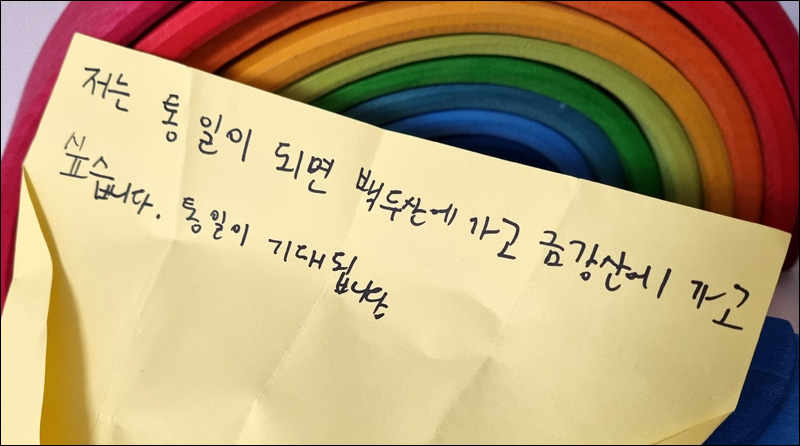 저는 통일이 되면 백두산에 가고 금강산에 가고
싶습니다. 통일이 기대됩니다